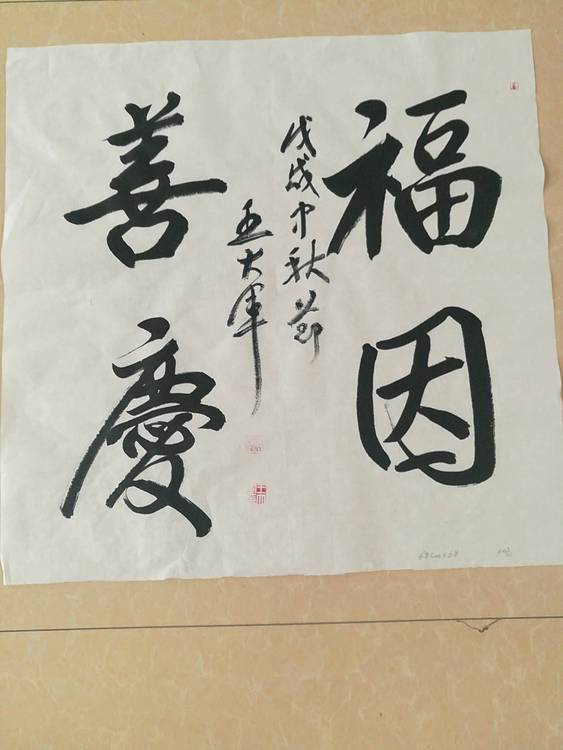 福因
善慶
戊戌中秋節
王大軍
68cm×68